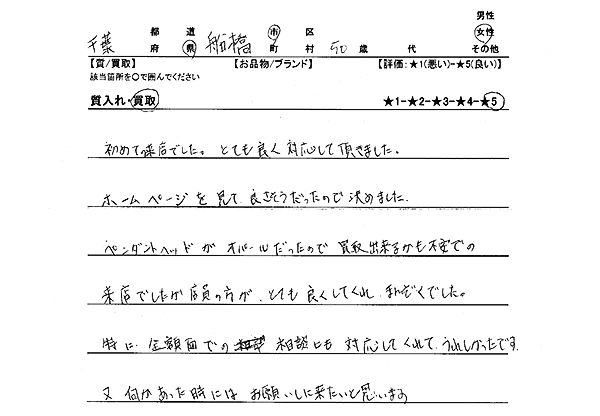 男性
千葉 都道府県 船橋 市区町村 50 歳代 女性
その他
【質/買取】 【お品物/ブランド】 【評価:★1(悪い)-★5(良い)】
該当箇所を○で囲んでください
質入れ・買取 ★1-★2-★3-★4-★5
初めて来店でした。とても良く対応して頂きました。
ホームページを見て、良さそうだったので決めました。
ペンダントヘッドがオパールだったので買取出来るかも不安での
来店でしたが店員の方が、とても良くしてくれ、まんぞくでした。
特に、金額面での相談にも対応してくれて、うれしかったです。
又何かあった時にはお願いしに来たいと思います